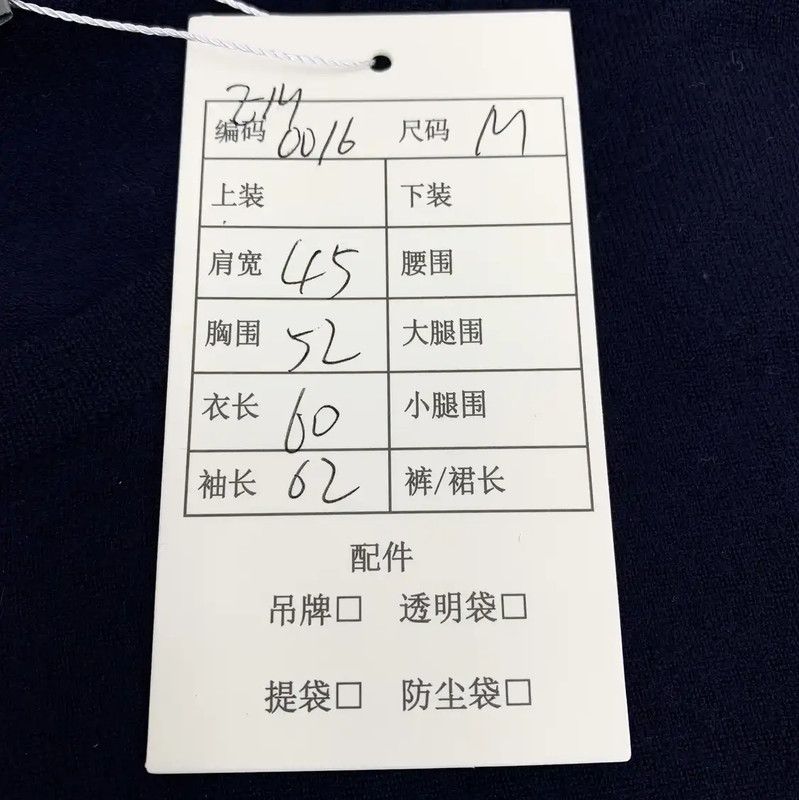 Z1M
编码 0016 尺码 M
上装 下装
肩宽 45 腰围
胸围 52 大腿围
衣长 60 小腿围
袖长 62 裤/裙长
配件
吊牌□ 透明袋□
提袋□ 防尘袋□